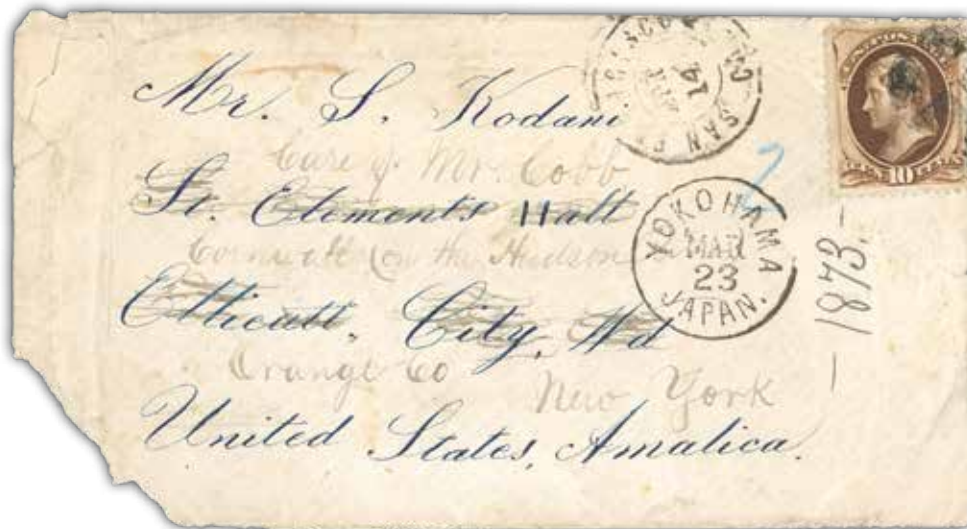 Mr. S. Kodani
Care of Mr. Cobb
St. Clements Hall
Cornwall on the Hudson
Ellicutt, City, Md
Orange Co New York
United States, Amalica.
SAN FRANCISCO
14
YOKOHAMA
MAR
23
JAPAN.
U.S. POSTAGE
TEN 10 CENTS
- 1873. -